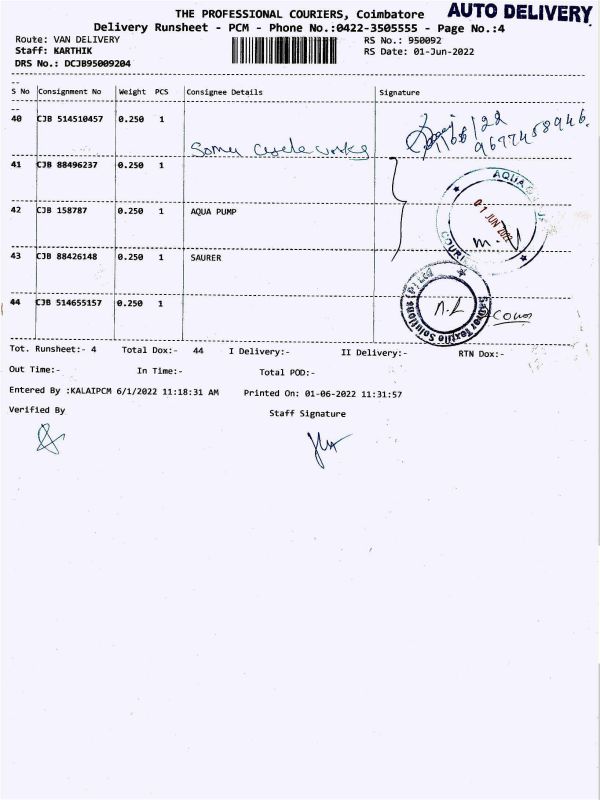 THE PROFESSIONAL COURIERS, Coimbatore
AUTO DELIVERY
Delivery Runsheet - PCM - Phone No.:0422-3505555 - Page No.:4
Route: VAN DELIVERY
RS No.: 950092
Staff: KARTHIK
RS Date: 01-Jun-2022
DRS No.: DCJB95009204
S No Consignment No Weight PCS Consignee Details Signature
40 CJB 514510457 0.250 1
9677458946.
41 CJB 88496237 0.250 1
AQUA
01 JUN 2022
42 CJB 158787 0.250 1 AQUA PUMP
43 CJB 88426148 0.250 1 SAURER
44 CJB 514655157 0.250 1
Saurer Textile Solutions (P) Ltd
Tot. Runsheet:- 4 Total Dox:- 44 I Delivery:- II Delivery:- RTN Dox:-
Out Time:- In Time:- Total POD:-
Entered By :KALAIPCM 6/1/2022 11:18:31 AM Printed On: 01-06-2022 11:31:57
Verified By Staff Signature